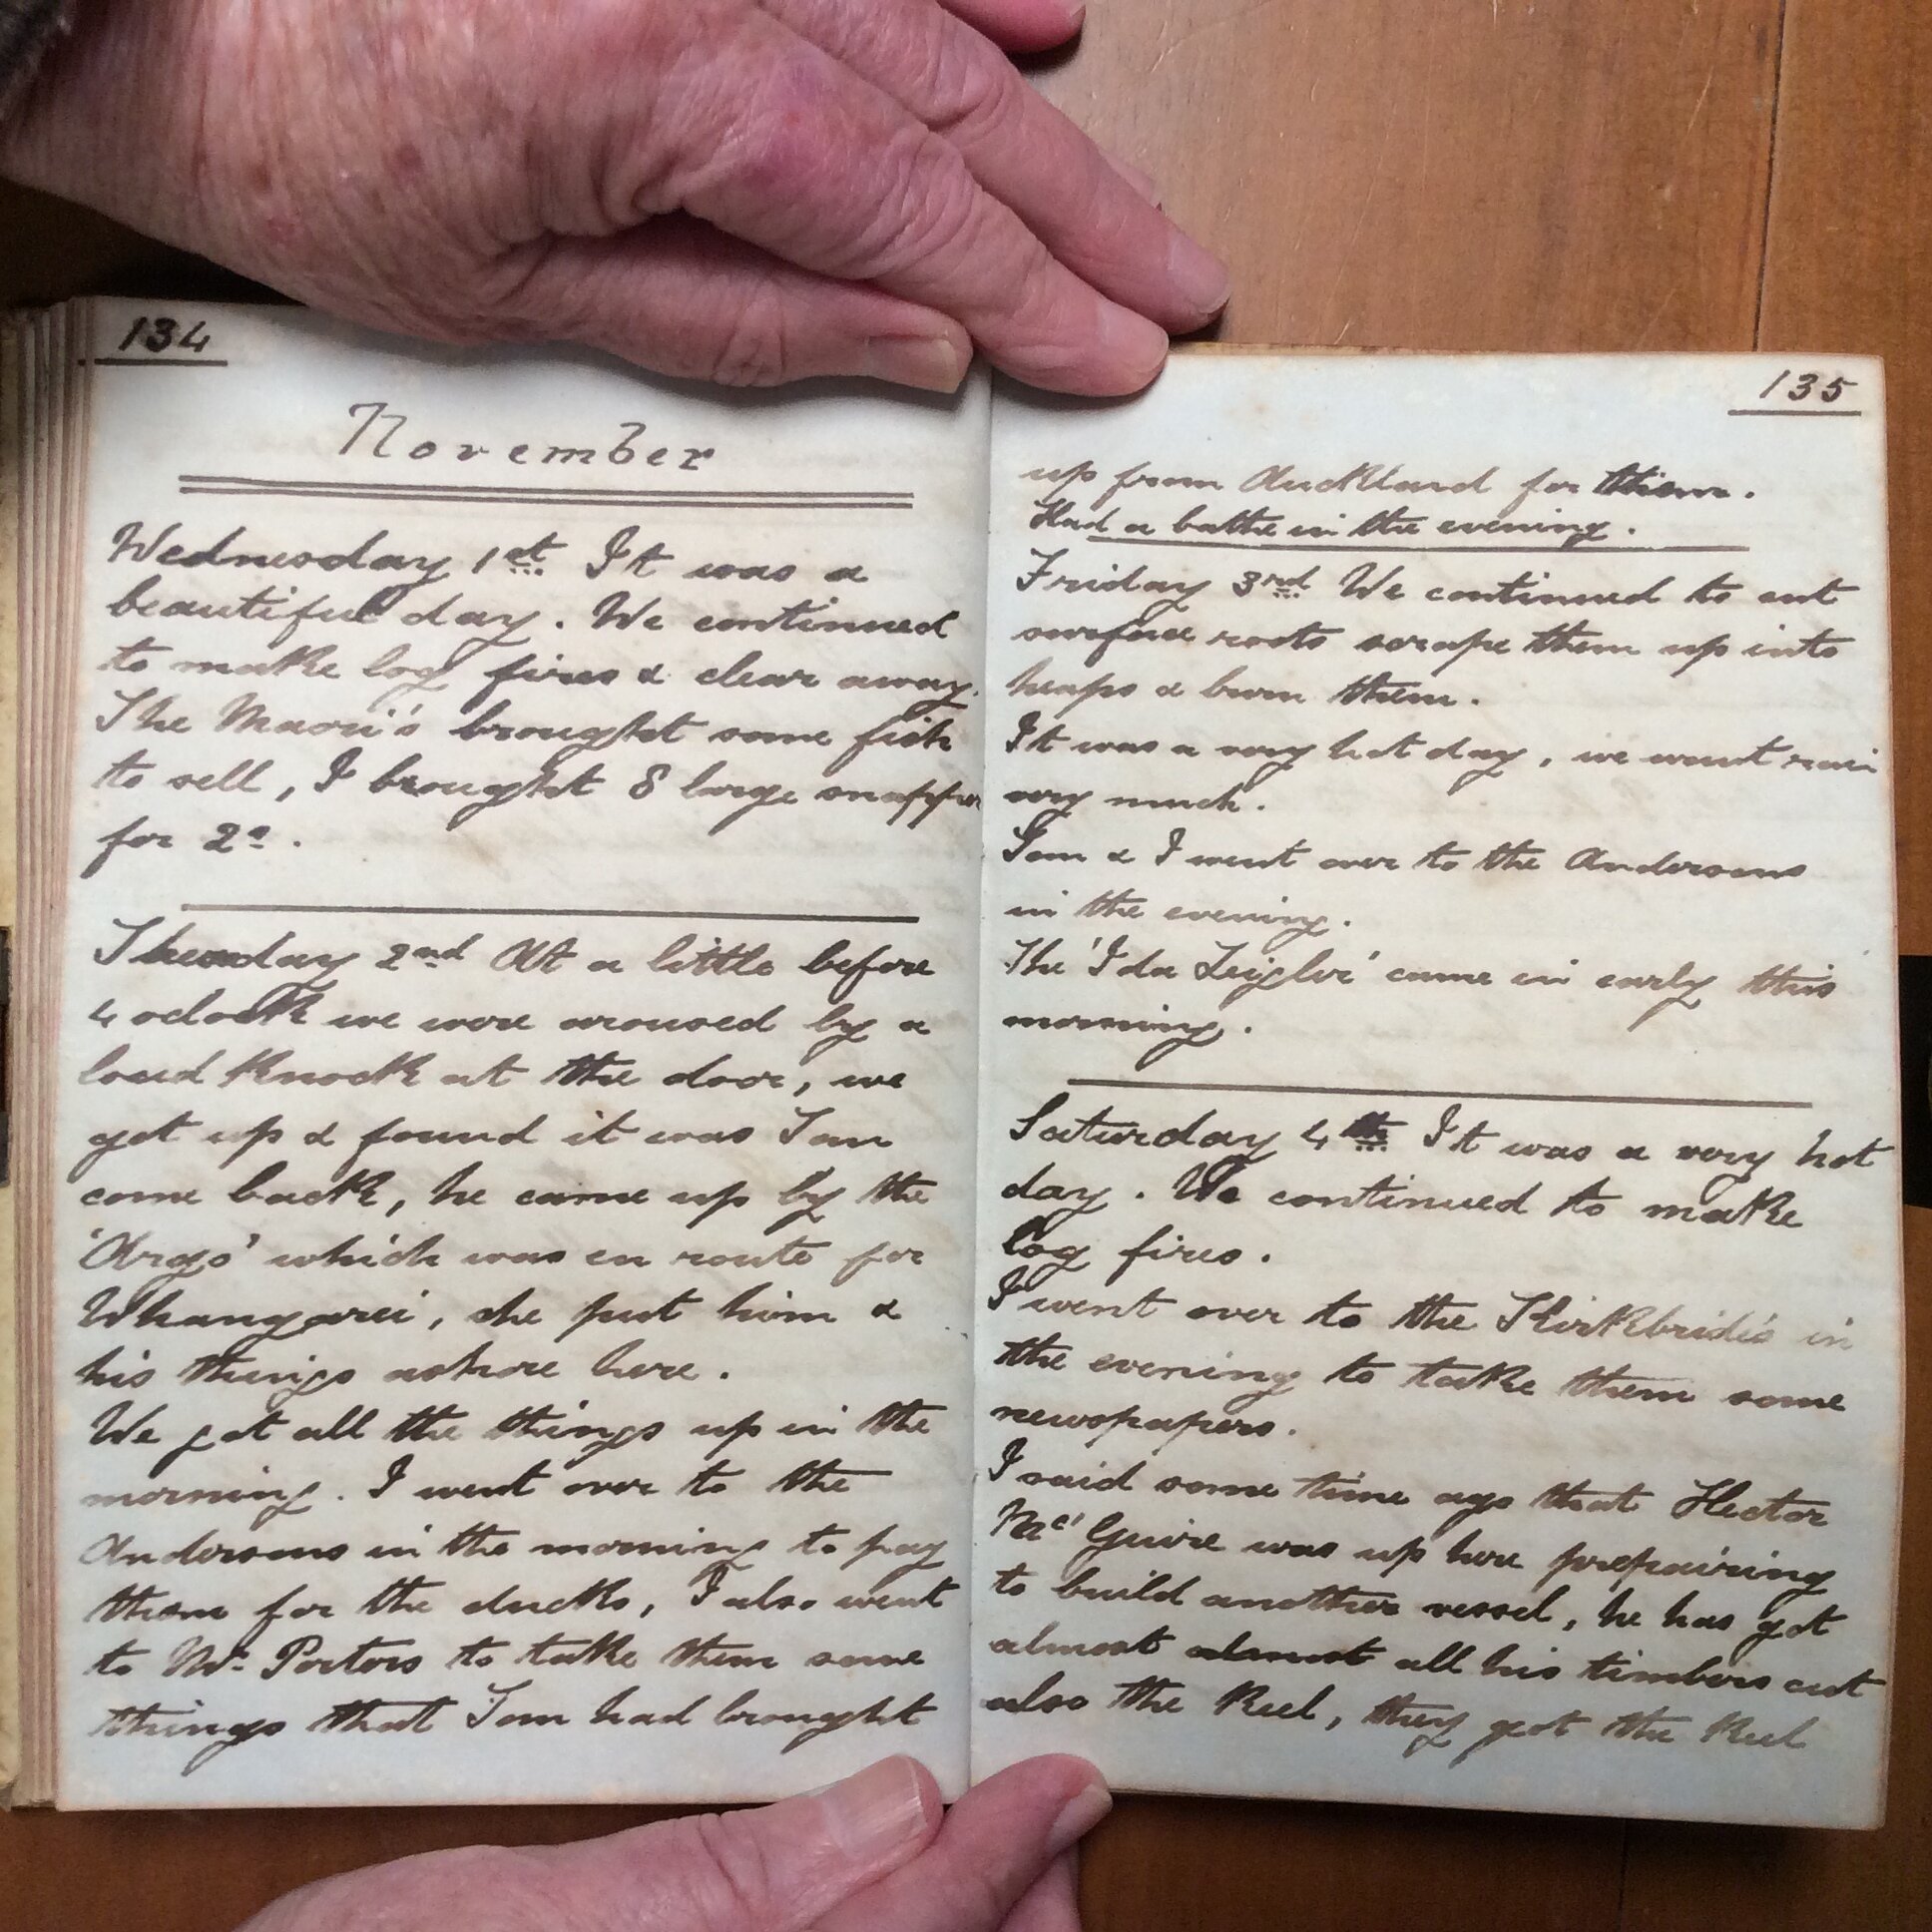 134
November
Wednesday 1st It was a
beautiful day. We continued
to make log fires & clear away.
The Maori's brought some fish
to sell, I brought 8 large snapper
for 2s.
Thursday 2nd At a little before
4 oclock we were aroused by a
loud knock at the door, we
got up & found it was Tom
come back, he came up by the
'Argo' which was en route for
Whangarei, she put him &
his things ashore here.
We got all the things up in the
morning. I went over to the
Andersons in the morning to pay
them for the ducks, I also went
to Mr Porters to take them some
things that Tom had brought
135
up from Auckland for them.
Had a bathe in the evening.
Friday 3rd We continued to cut
surface roots scrape them up into
heaps & burn them.
It was a very hot day, we want rain
very much.
Tom & I went over to the Andersons
in the evening.
The 'Ida Zeigler' came in early this
morning.
Saturday 4th It was a very hot
day. We continued to make
log fires.
I went over to the Kirkbride's in
the evening to take them some
newspapers.
I said some time ago that Hector
Mc' Guire was up here prepairing
to build another vessel, he has got
almost almost all his timbers cut
also the Keel, they got the Keel